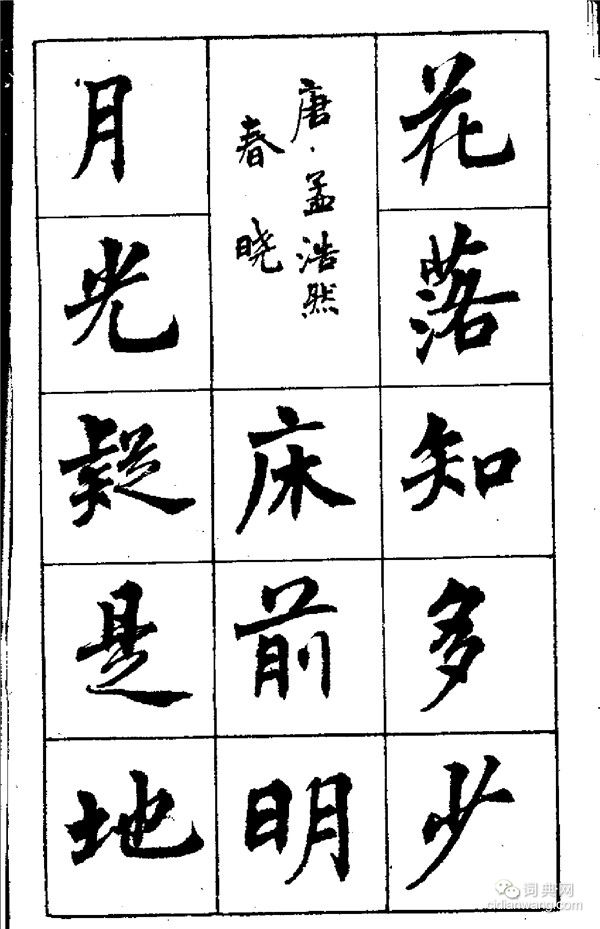 花落知多少
唐·孟浩然
春晓
床前明
月光疑是地
词典网
cidianwang.com